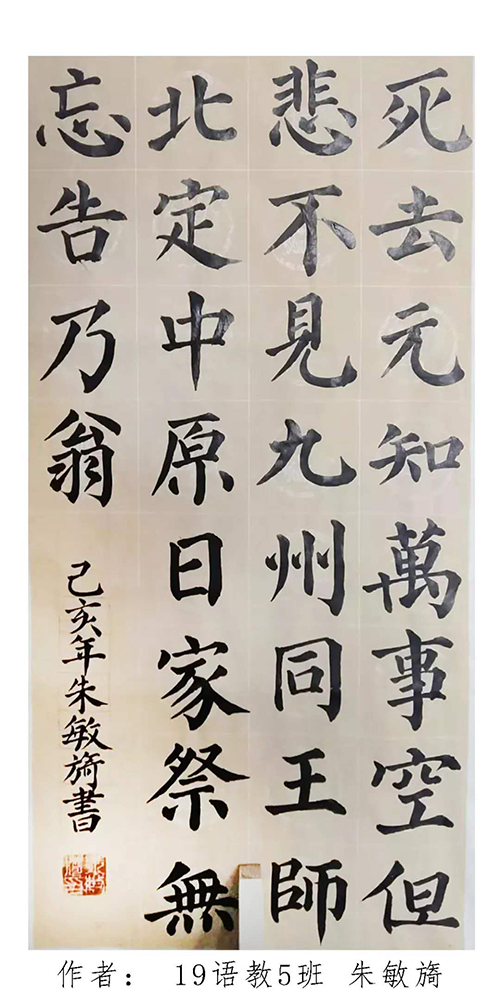 死去元知萬事空但
悲不見九州同王師
北定中原日家祭無
忘告乃翁
己亥年朱敏旖書
作者： 19语教5班 朱敏旖